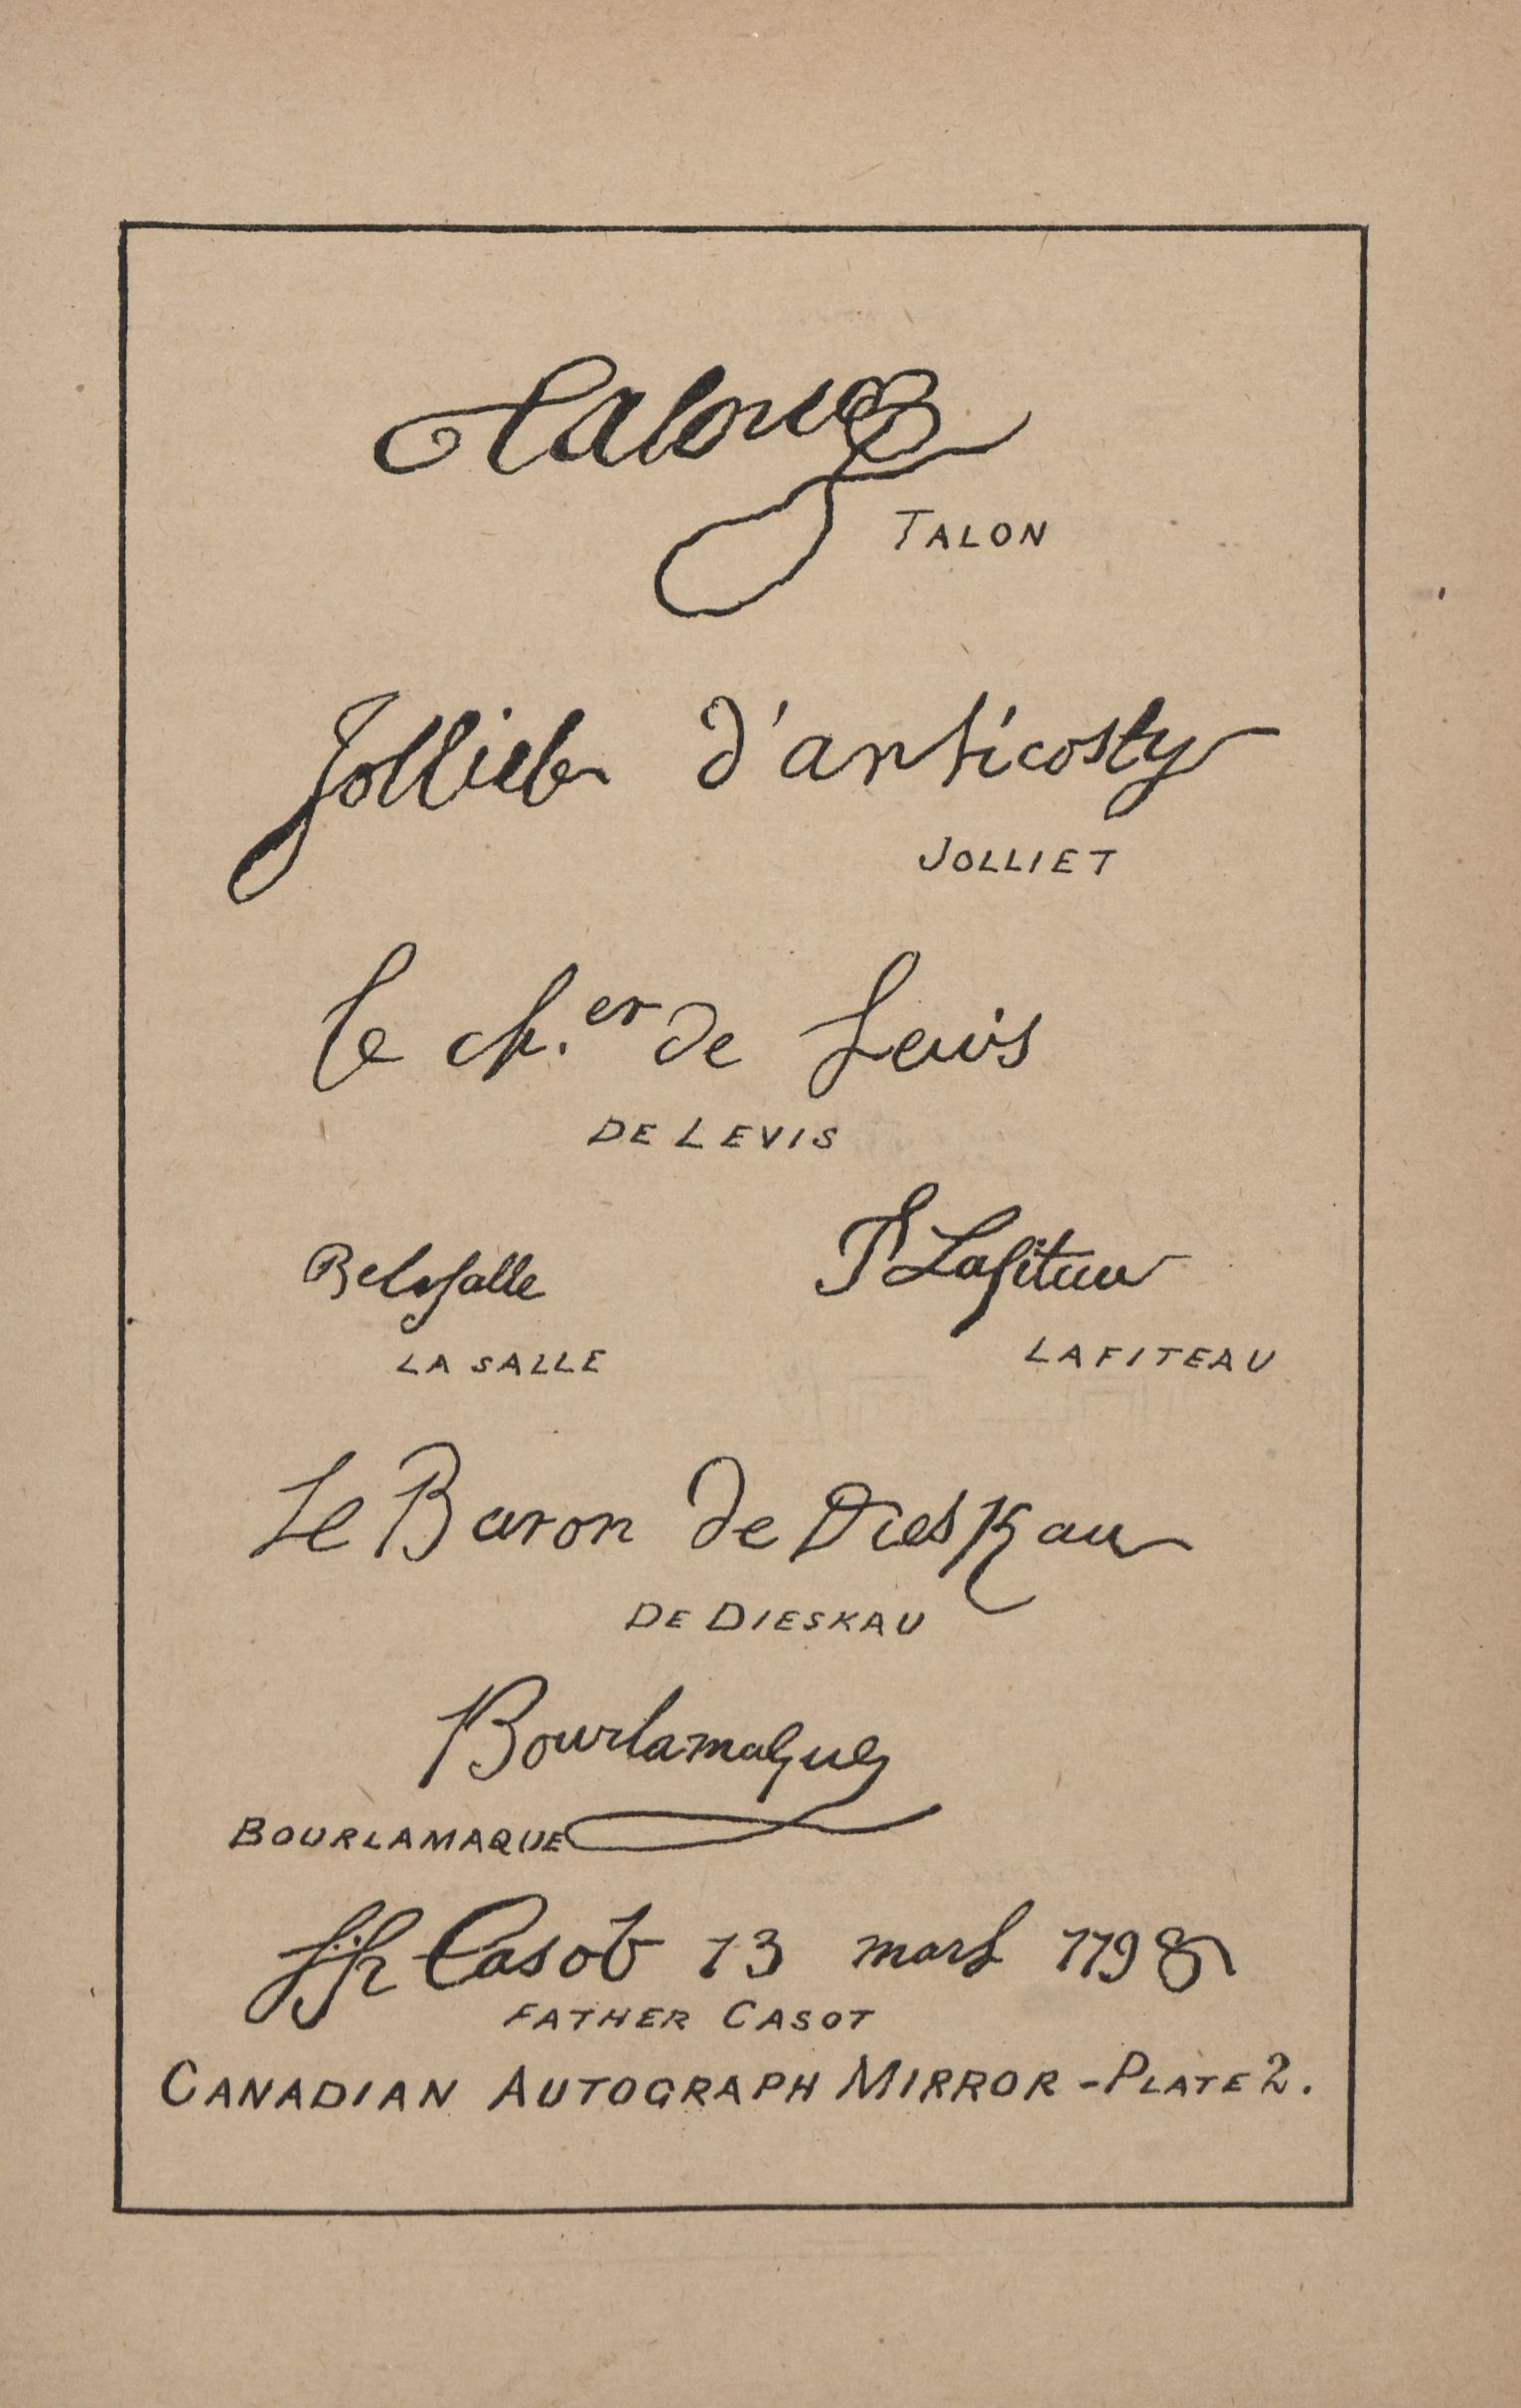 Talon
TALON
Jolliet d'anticosty
JOLLIET
le ch.er de Levis
DE LEVIS
Delasalle
J Lafiteau
LA SALLE
LAFITEAU
Le Baron de Dieskau
DE DIESKAU
Bourlamaque
BOURLAMAQUE
jh Casot 13 mars 1798
FATHER CASOT
CANADIAN AUTOGRAPH MIRROR - PLATE 2.